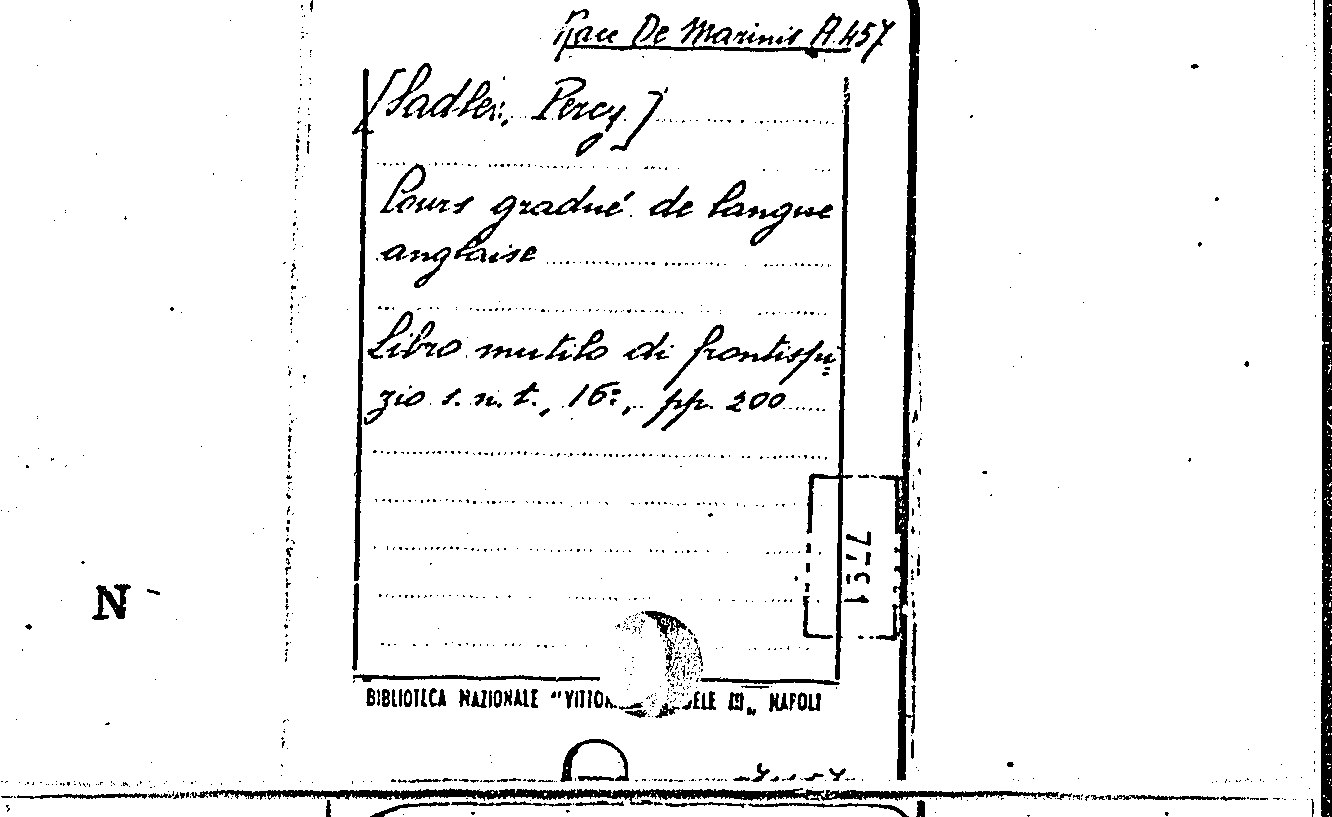 Race De Marinis A.457
[Sadler, Percy]
Cours gradué de langue
anglaise
Libro mutilo di frontispi
zio s. n. t., 16º, pp. 200
7791
N
BIBLIOTECA NAZIONALE "VITTORIO EMANUELE III„ NAPOLI